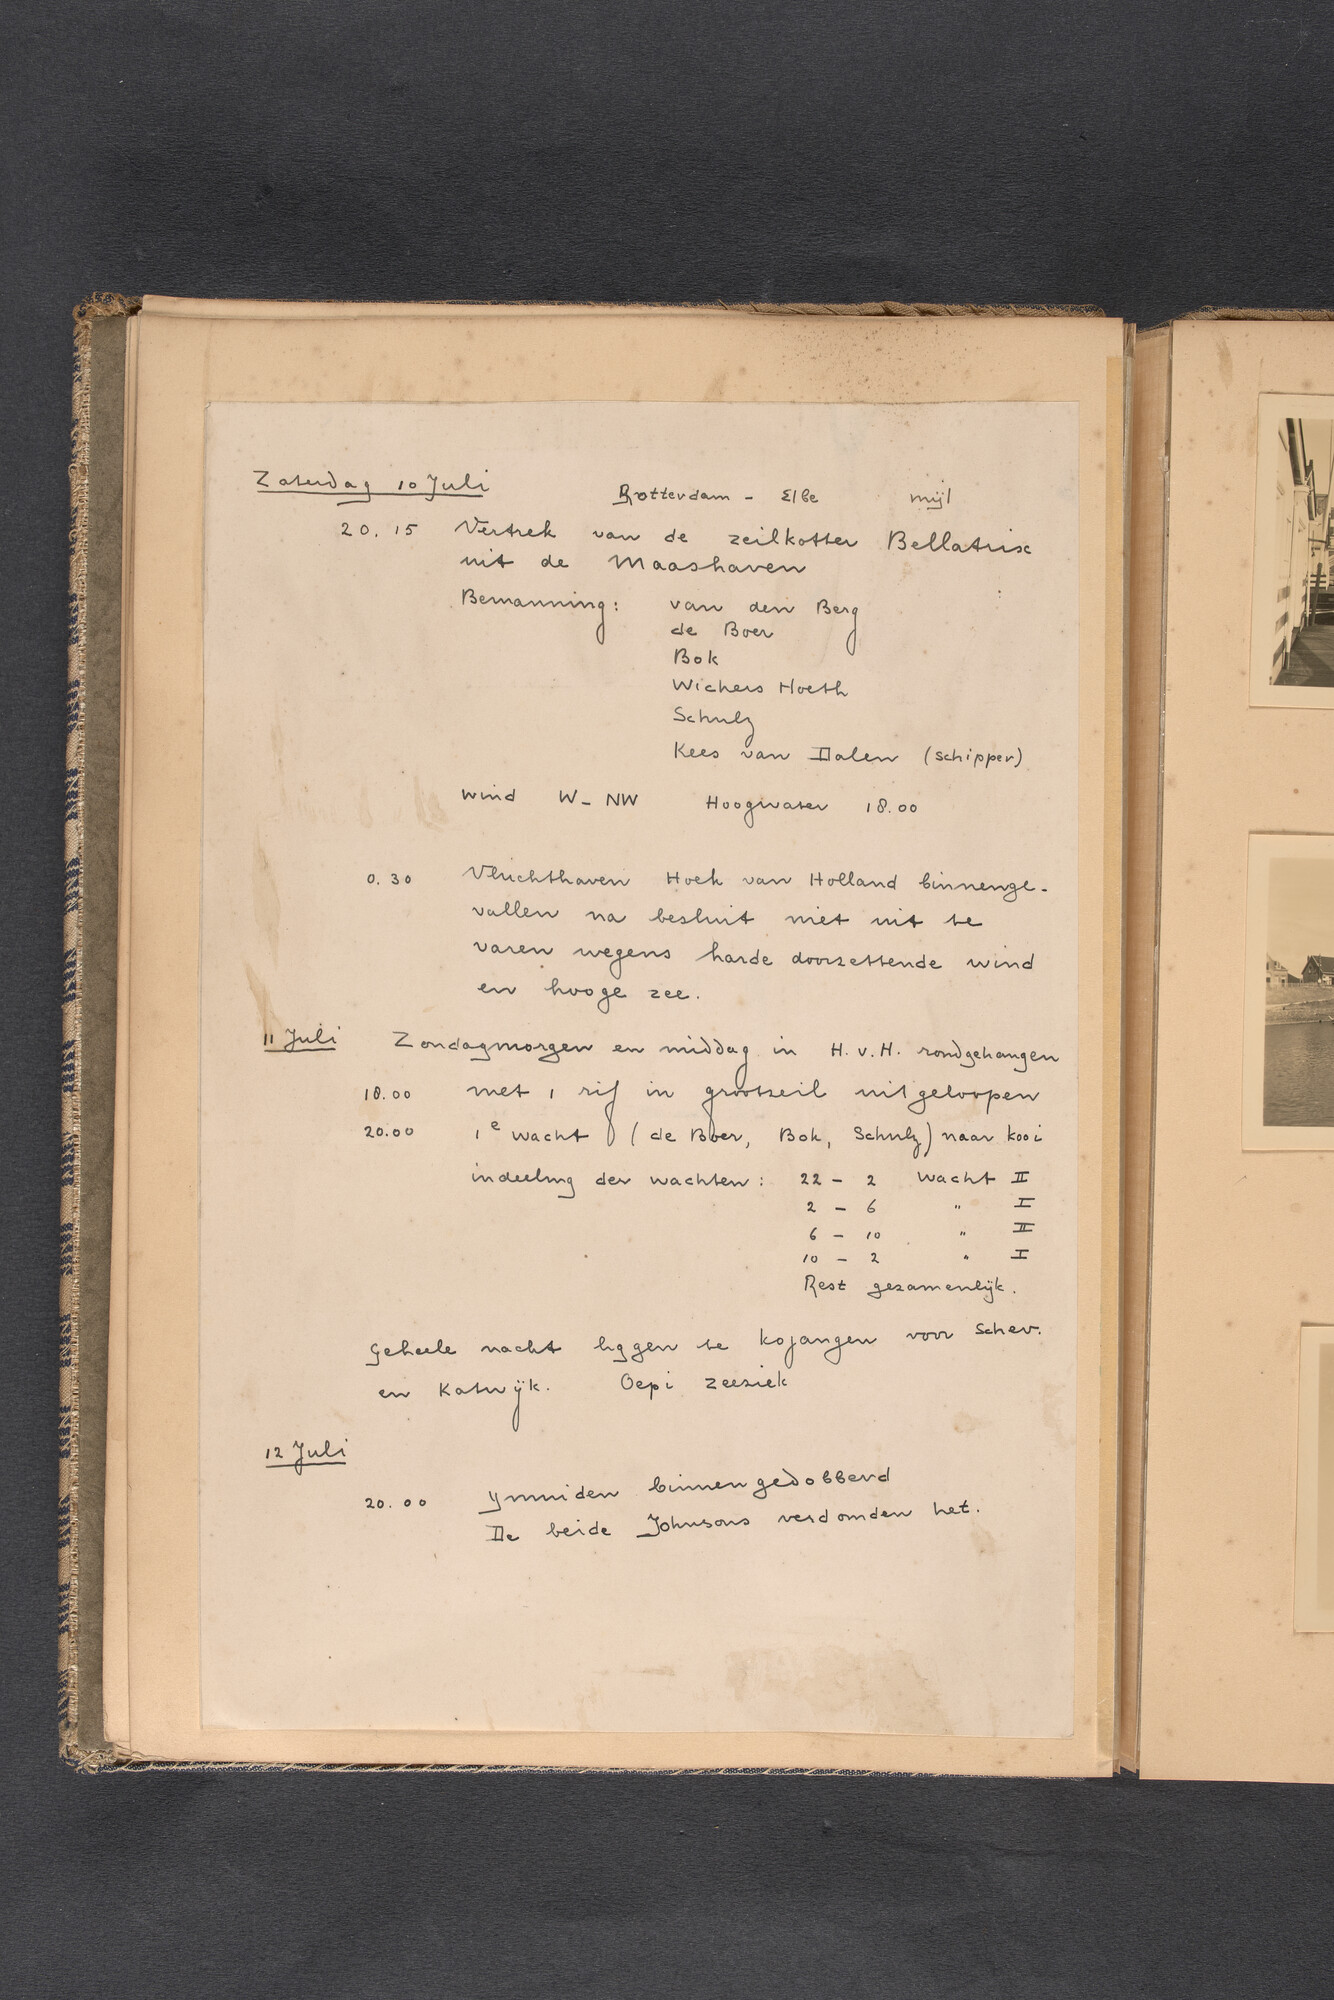 Zaterdag 10 Juli
Rotterdam - Elbe mijl
20.15 Vertrek van de zeilkotter Bellatrix
uit de Maashaven
Bemanning: van den Berg
de Boer
Bok
Wichers Hoeth
Schulz
Kees van Dalen (schipper)
wind W - NW Hoogwater 18.00
0.30 Vluchthaven Hoek van Holland binnenge-
vallen na besluit niet uit te
varen wegens harde doorzettende wind
en hooge zee.
11 Juli Zondagmorgen en middag in H.v.H. rondgehangen
18.00 met 1 rif in grootzeil uitgeloopen
20.00 1e wacht (de Boer, Bok, Schulz) naar kooi
indeeling der wachten: 22 - 2 Wacht II
2 - 6 " I
6 - 10 " II
10 - 2 " I
Rest gezamenlijk.
Geheele nacht liggen te kojangen voor Schev.
en Katwijk. Oepi zeeziek
12 Juli
20.00 Ymuiden binnengedobberd
De beide Johnsons verdomden het.